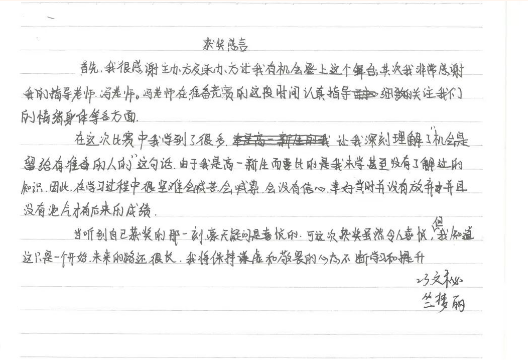 获奖感言
首先,我很感谢主办方及承办方让我有机会登上这个舞台,其次我非常感谢
我的指导老师,冯老师。冯老师在准备竞赛的这段时间认真指导 细致关注我们
的情绪身体等各方面.
在这次比赛中我学到了很多, 让我深刻理解了"机会是
留给有准备的人的"这句话,由于我是高一新生而要比的是我未学甚至没有了解过的
知识,因此,在学习过程中很坚难会感觉会喊,会没有信心,幸好当时并没有放弃并且
没有 才有后来的成绩.
当听到自己获奖的那一刻,毫无疑问是喜悦的.可这次获奖虽然令人喜悦,但我知道
这只是一个开始,未来的路还很长,我将保持谦虚和敬畏的心态不断学习和提升
冯文
竺梦丽